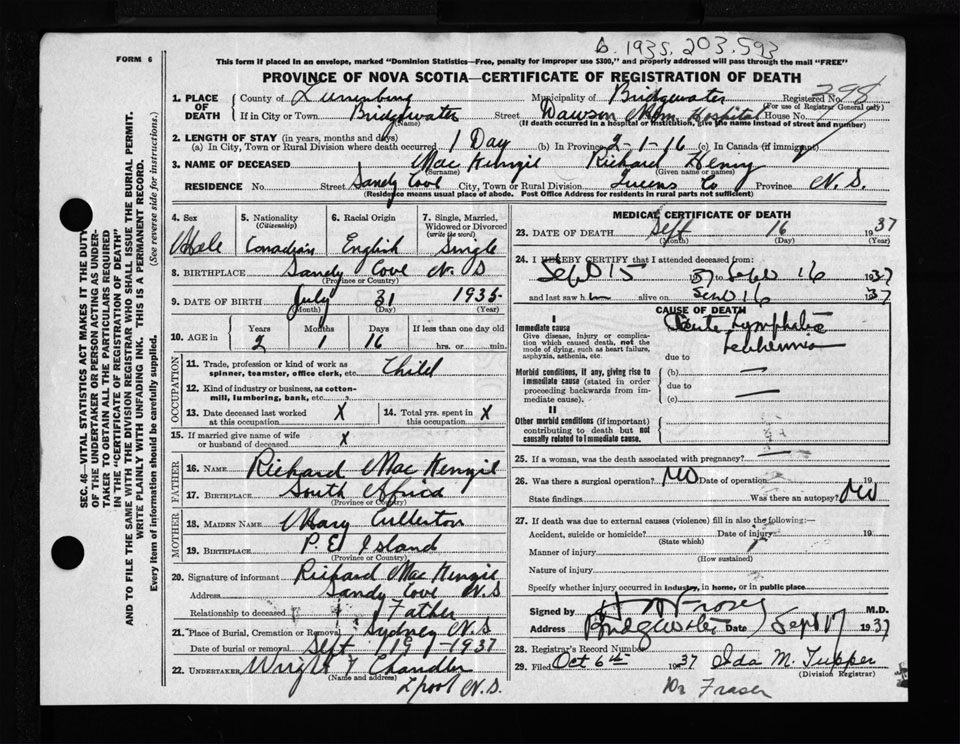 b. 1935. 203.593
FORM 6
This form if placed in an envelope, marked "Dominion Statistics—Free, penalty for improper use $300," and properly addressed will pass through the mail "FREE"
PROVINCE OF NOVA SCOTIA—CERTIFICATE OF REGISTRATION OF DEATH
1. PLACE OF DEATH County of Lunenburg Municipality of Bridgewater Registered No. 398
(For use of Registrar General only)
If in City or Town Bridgewater Street Dawson Mem. Hospital House No.
(Name) (If death occurred in a hospital or institution, give the name instead of street and number)
2. LENGTH OF STAY (in years, months and days)
(a) In City, Town or Rural Division where death occurred 1 Day (b) In Province 2-1-16 (c) In Canada (if immigrant)
3. NAME OF DECEASED MacKenzie Richard Henry
(Surname) (Given name or names)
RESIDENCE No. Street Sandy Cove City, Town or Rural Division Queens Co Province N.S.
(Residence means usual place of abode. Post Office Address for residents in rural parts not sufficient)
SEC. 46—VITAL STATISTICS ACT MAKES IT THE DUTY
OF THE UNDERTAKER OR PERSON ACTING AS UNDER-
TAKER TO OBTAIN ALL THE PARTICULARS REQUIRED
IN THE "CERTIFICATE OF REGISTRATION OF DEATH"
AND TO FILE THE SAME WITH THE DIVISION REGISTRAR WHO SHALL ISSUE THE BURIAL PERMIT.
WRITE PLAINLY WITH UNFADING INK. THIS IS A PERMANENT RECORD.
Every item of information should be carefully supplied. (See reverse side for instructions.)
4. Sex 5. Nationality (Citizenship) 6. Racial Origin 7. Single, Married, Widowed or Divorced (write the word)
Male Canadian English Single
8. BIRTHPLACE Sandy Cove N.S
(Province or Country)
9. DATE OF BIRTH July 31 1935
(Month) (Day) (Year)
10. AGE in Years Months Days If less than one day old
2 1 16 hrs. or min.
OCCUPATION
11. Trade, profession or kind of work as spinner, teamster, office clerk, etc. Child
12. Kind of industry or business, as cotton-mill, lumbering, bank, etc.
13. Date deceased last worked at this occupation X 14. Total yrs. spent in this occupation X
15. If married give name of wife or husband of deceased X
FATHER
16. NAME Richard MacKenzie
17. BIRTHPLACE South Africa
(Province or Country)
MOTHER
18. MAIDEN NAME Mary Cullerton
19. BIRTHPLACE P.E Island
(Province or Country)
20. Signature of informant Richard MacKenzie
Address Sandy Cove N.S
Relationship to deceased Father
21. Place of Burial, Cremation or Removal Sydney N.S
Date of burial or removal Sept 19 1937
22. UNDERTAKER Wright & Chandler
(Name and address)
L'pool N.S.
MEDICAL CERTIFICATE OF DEATH
23. DATE OF DEATH Sept 16 1937
(Month) (Day) (Year)
24. I HEREBY CERTIFY that I attended deceased from:
Sept 15 1937 to Sept 16 1937
and last saw him alive on Sept 16 1937
CAUSE OF DEATH
I
Immediate cause
Give disease, injury or complication which caused death, not the mode of dying, such as heart failure, asphyxia, asthenia, etc.
Acute Lymphatic
Leukemia
due to
Morbid conditions, if any, giving rise to immediate cause (stated in order proceeding backwards from immediate cause).
(b) —
due to
(c) —
II
Other morbid conditions (if important) contributing to death but not causally related to immediate cause.
25. If a woman, was the death associated with pregnancy? —
26. Was there a surgical operation? No Date of operation 19
State findings Was there an autopsy? No
27. If death was due to external causes (violence) fill in also the following:—
Accident, suicide or homicide? Date of injury 19
(State which)
Manner of injury
(How sustained)
Nature of injury
Specify whether injury occurred in industry, in home, or in public place
Signed by M.D.
Address Bridgewater Date Sept 17 1937
28. Registrar's Record Number
29. Filed Oct 6th 1937 Ida M. Tupper
(Division Registrar)
Dr Fraser